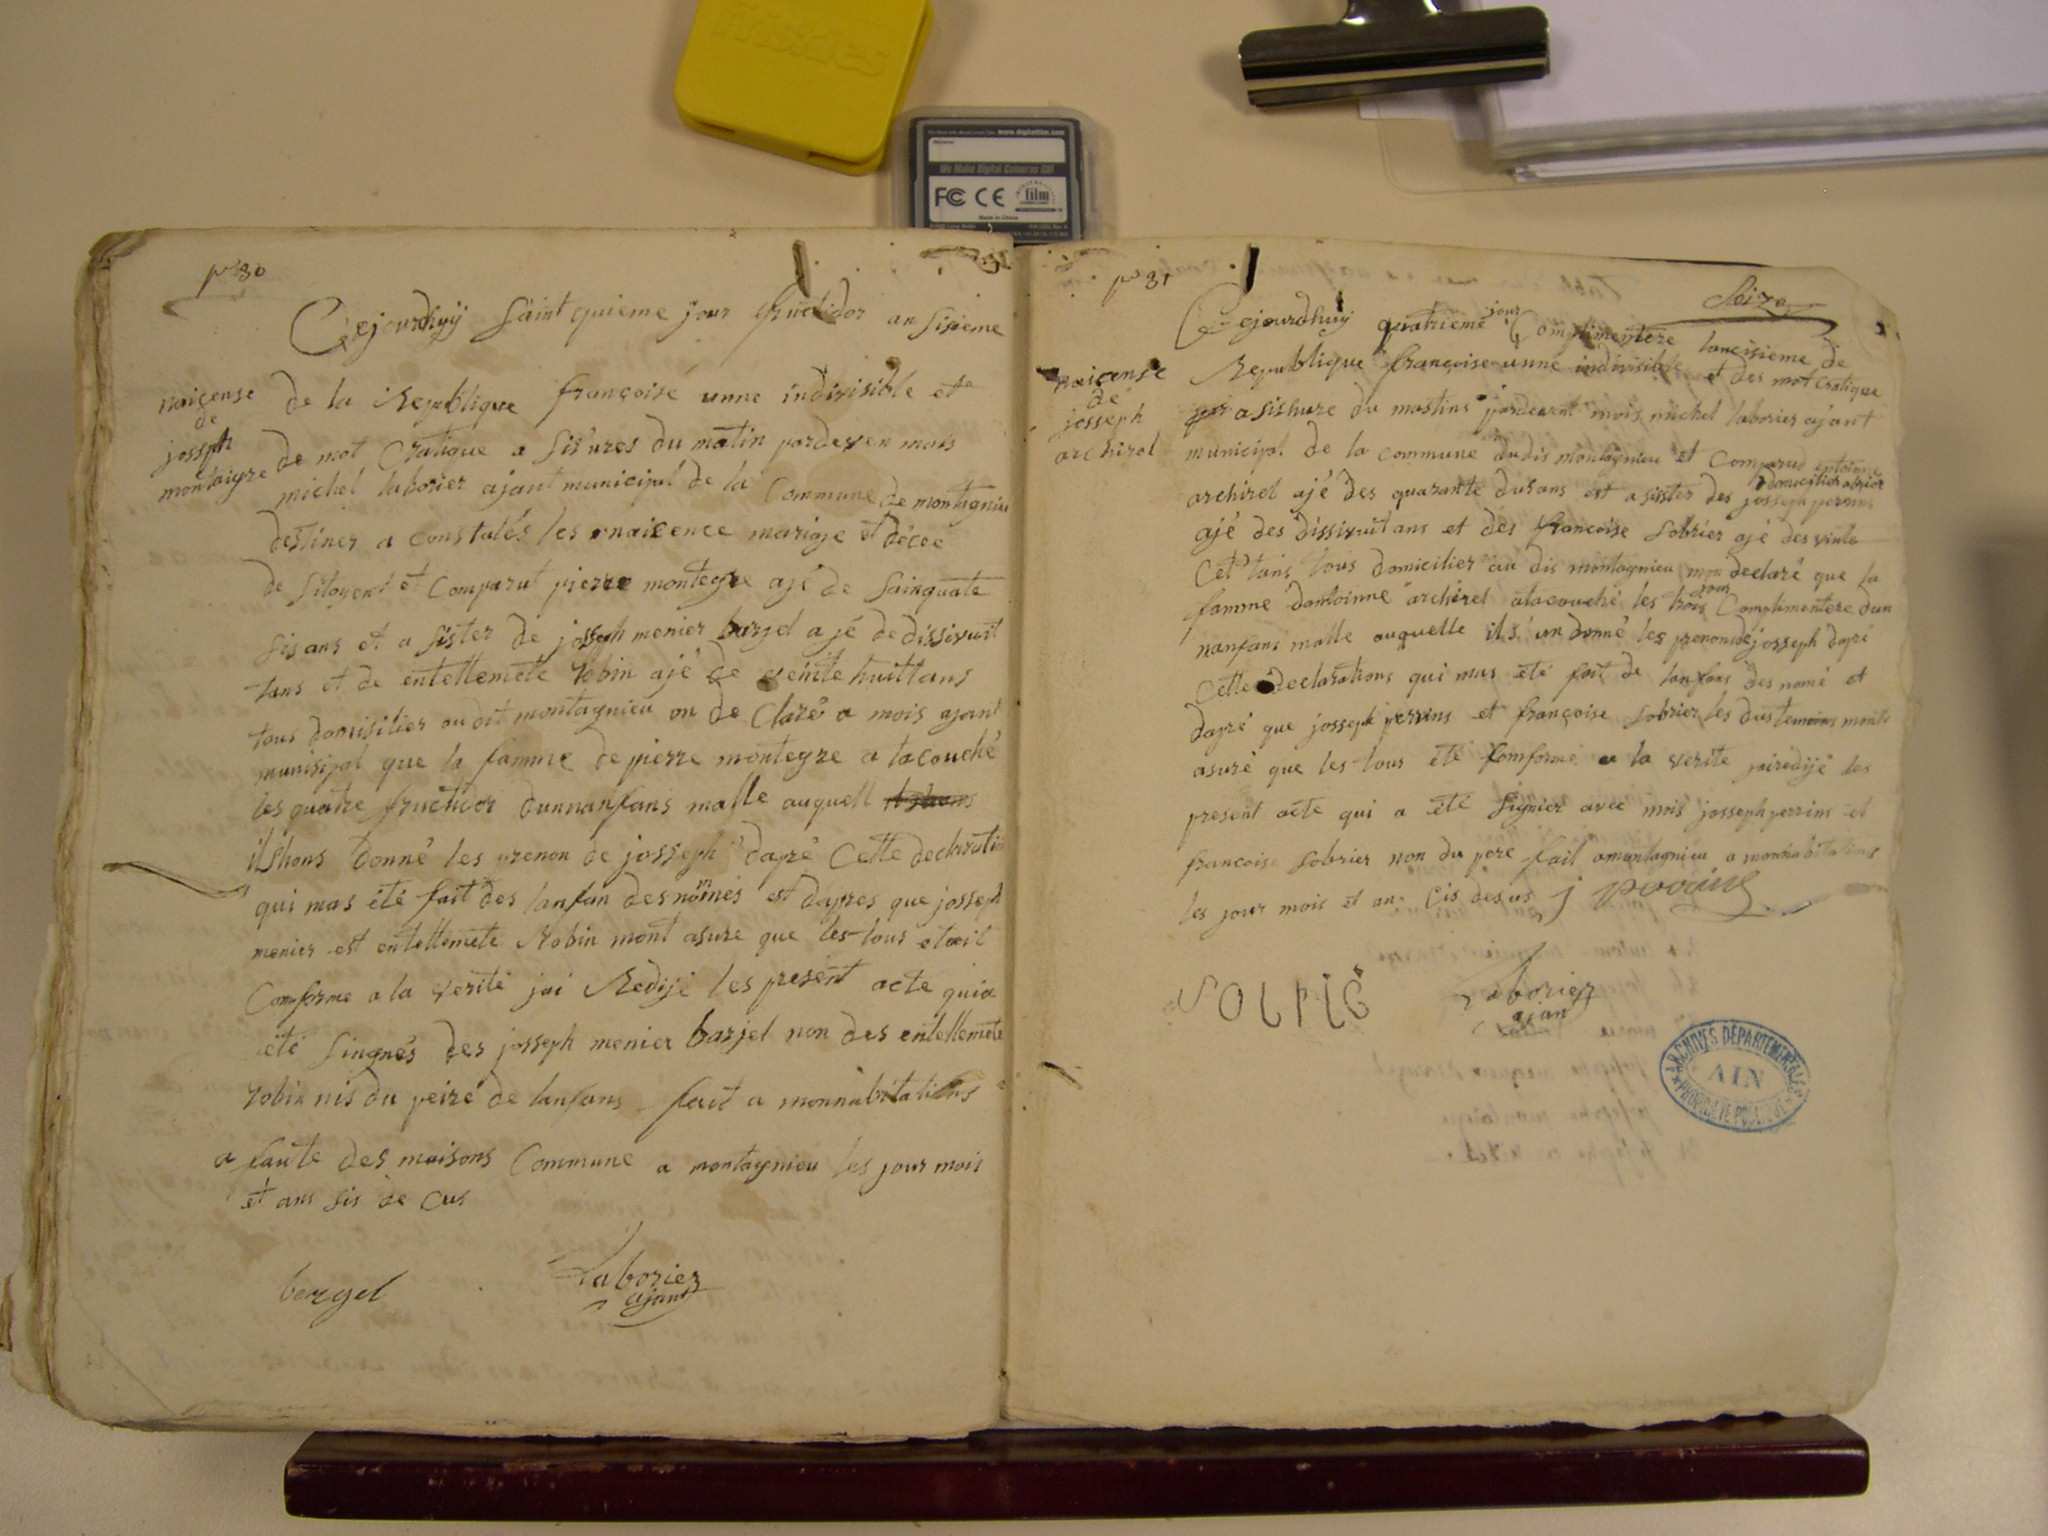 www.digitalfilm.com
We Make Digital Cameras Go!
FC CE film
Made in China
no 30
Cejourdhuy Saint quieme jour fructidor an sisieme
naicense
de
josseph
montaigre
de la Republique françoise unne indivisible et
de mot Cratique a sis ures du matin pardeven mois
michel laborier ajant municipal de la Commune de montagnieu
destiner a constalés les naicence mariaje et décee
de sitoyent et Comparut pierre montegre ajé de sainquate
sis ans et a sister de josseph menier barjel ajé de dissivuit
tans et de entellemete robin ajé de veinte huittans
tous domisilier au dit montagnieu on de Claré a mois ajant
munisipal que la famme de pierre montegre a lacouché
les quatre fructidor dunnanfans malle auquell
ilshons donné les prenon de josseph dapré Cette declaratin
qui mas été fait des lanfan des només est dapres que josseph
menier est entellemete Robin mont asure que les tous etoeit
Comforme a la verité jai Redije les present acte qui a
été singnés des josseph menier barjel non des entellemete
robin nis du peiré de lanfans fait a monnabitations
a faute des maisons Commune a montagnieu les jour mois
et ans sis de Cus
bargel
Laborier
ajant
no 31
Seize
Cejourdhuy quatrieme jour Complimentere lansisieme de
naicense
de
josseph
archirel
Republique françoise unne indivisible et des mot Cratique
a sishure du mastins pardevent mois michel laborier ajant
municipal de la commune dudis montagnieu et Comparud antoinne
archirel ajé des quarante dusans est asister des josseph perrins
domicilier
ajé des dissivuit ans et des francoise Sobrier ajé des vinte
Cet tans tous domicilier au dis montagnieu mon declaré que la
famme dantoinne archirel alacouché les trois jour Complimentere dun
nanfans malle auquelle ils un donné les prenon de josseph dapré
Cette declarations qui mas été fait de lanfans des nomé et
dapré que josseph perrins et françoise Sobrier les dus temoins monts
asuré que les tous été Comforme a la verite jairedijé les
present acte qui a été signier avec mois josseph perrins et
francoise Sobrier non du pere fait amontagnieu a monnabitations
les jour mois et an Cis desus j perrins
Laborier
ajan
ARCHIVES DÉPARTEMENTALES
AIN